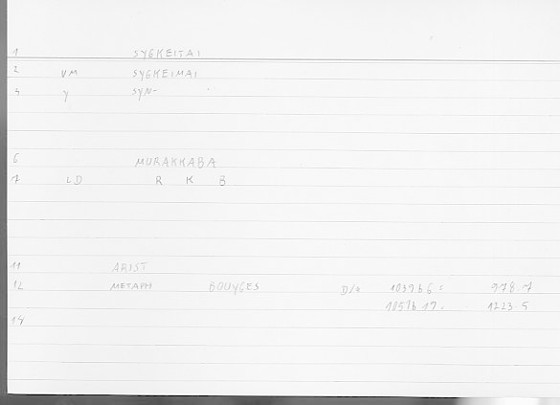 1 SYGKEITAI
2 VM SYGKEIMAI
4 Y SYN-
6 MURAKKABA
7 LD R K B
11 ARIST
12 METAPH BOUYGES D/0 1039b6: 978.7
1057b 19. 1223 5
14